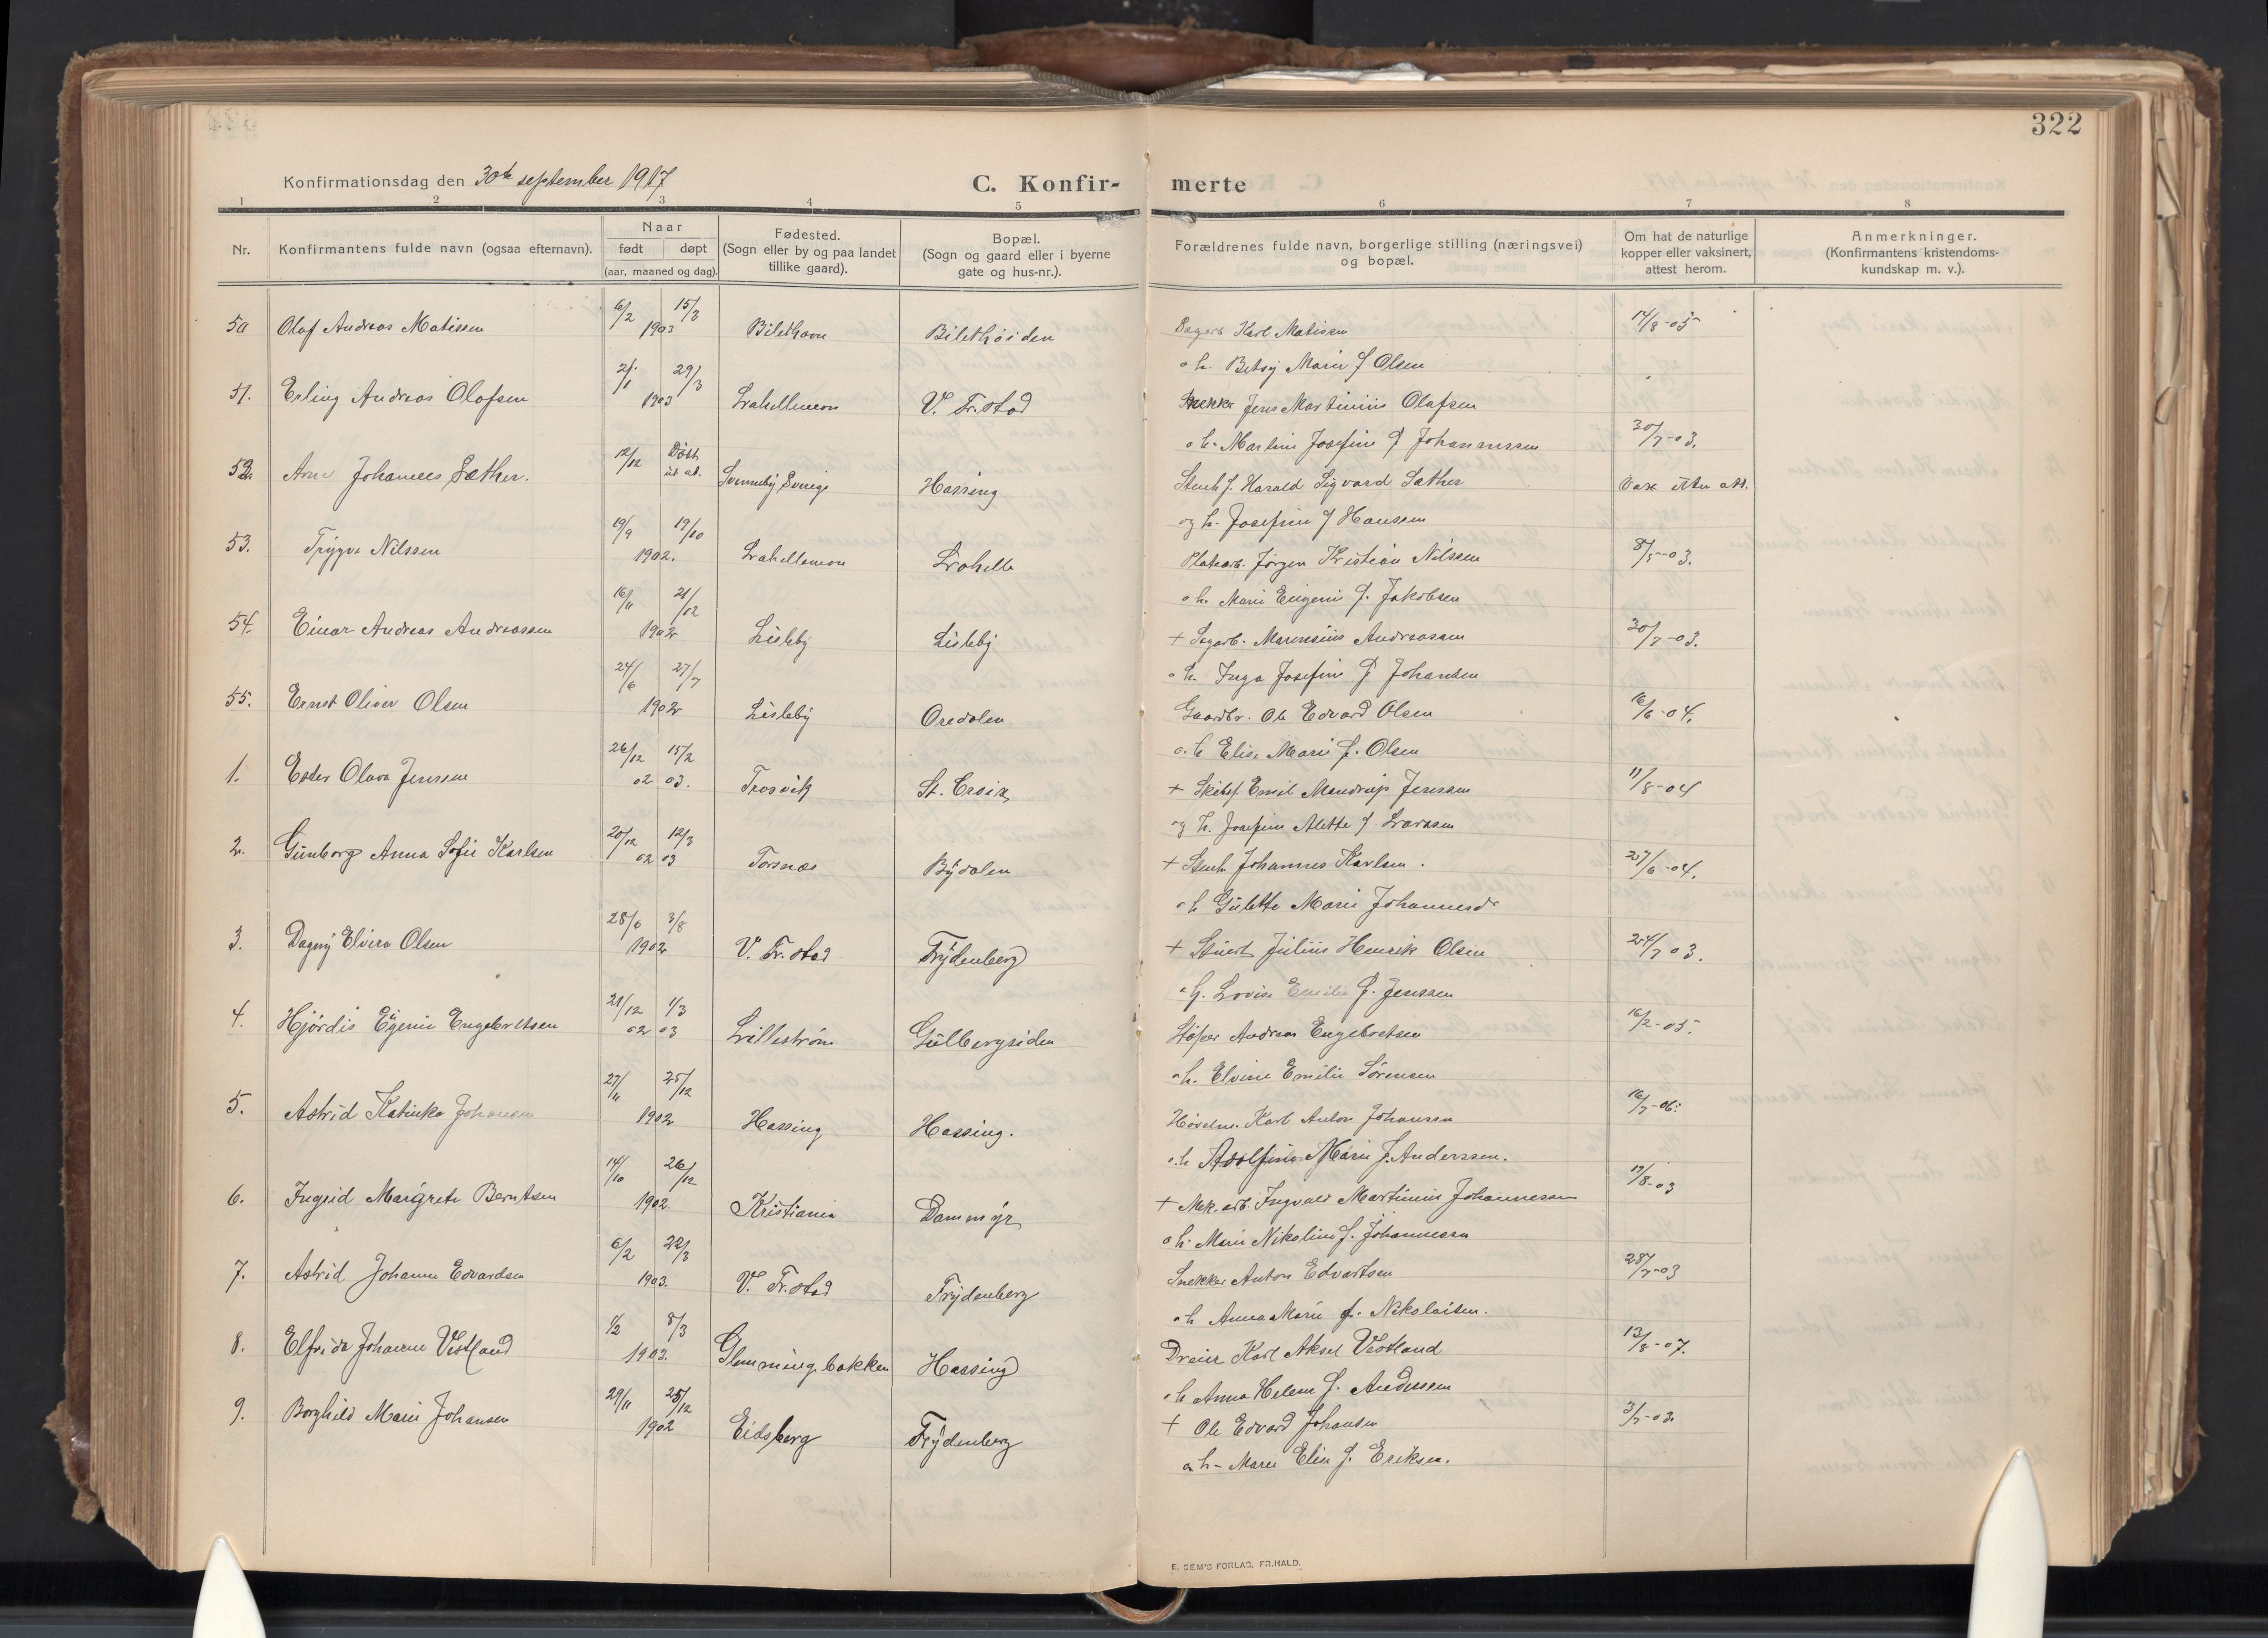 322
Konfirmationsdag den 30te september 1917
C. Konfir- merte
1 2 3 4 5 6 7 8
Nr.
Konfirmantens fulde navn (ogsaa efternavn).
Naar
født døpt
(aar, maaned og dag).
Fødested.
(Sogn eller by og paa landet
tillike gaard).
Bopæl.
(Sogn og gaard eller i byerne
gate og hus-nr.).
Forældrenes fulde navn, borgerlige stilling (næringsvei)
og bopæl.
Om hat de naturlige
kopper eller vaksinert,
attest herom.
Anmerkninger.
(Konfirmantens kristendoms-
kundskap m. v.).
50 Olaf Andreas Matissen 6/2 15/3 1903 Bilethavn Bilethøiden Karl Matissen 14/8-05
o h. Betsy Marie f Olsen
51. Erling Andreas Olafsen 2/1 29/3 1903 V. Fr.stad Snekker Jens Martinius Olafsen
o h. Martine Josefine f Johannessen 30/7-03.
52. Arne Johannes Sæther. 12/12 Døbt Svenneby Sverige Hassing Stenh f. Harald Sigvard Sæther
og h. Josefine f Hansen
53. Trygve Nilssen 19/9 19/10 1902. Platearb. Jørgen Kristian Nilssen 8/5-03.
o h. Marie Eugenie f. Jakobsen
54. Einar Andreas Andreassen 16/11 21/12 1902 Lisleby Lisleby + Sagarb. Marensius Andreassen 30/7-03.
o h. Inga Josefine f Johansen
55. Ernst Oliver Olsen 24/6 27/7 1902 Lisleby Oredalen Gaardbr. Ole Edvard Olsen 16/6-04.
o. h Elise Marie f. Olsen
1. Ester Olava Jenssen 26/12 15/2 02 03. Trosvik St. Croix + Skibsf Emil Mandrup Jenssen 11/8-04
og h. Josefine Alette f Larssen
2. Gunborg Anna Sofie Karlsen 20/12 12/3 02 03 Torsnæs Bydalen + Stenh. Johannes Karlsen. 27/6-04.
o h Gulette Marie Johannesd
3. Dagny Elvira Olsen 28/6 3/8 1902 V. Fr.stad Frydenberg + Stuert Julius Henrik Olsen 24/7 03.
o h. Lovise Emilie f. Jenssen
4. Hjørdis Egenie Engebretsen 21/12 1/3 02 03 Lillestrøm Gulbergsiden Støper Andreas Engebretsen 16/2-05.
o h. Elvine Emilie Sørensen
5. Astrid Katinka Johansen 27/11 25/12 1902 Hassing Hassing. Karl Anton Johansen 16/7-06.
o. h Adolfine Marie f. Anderssen.
6. Ingrid Margrete Berntsen 14/10 26/12 1902 Kristiania Dammyr + Mek. arb. Ingvald Martinius Johannessen 17/8-03
o h. Marie Nikoline f. Johannessen
7. Astrid Johanne Edvardsen 6/2 22/3 1903. V. Fr.stad Frydenberg Snekker Anton Edvartsen 28/7-03
o h Anna Marie f. Nikolaisen.
8. Elfrida Johanne Vestland 1/2 8/3 1903. Glemmingebakken Hassing Dreier Karl Aksel Vestland 13/8-07.
o h Anna Helene f. Anderssen
9. Borghild Marie Johansen 29/11 25/12 1902 Eidsberg Frydenberg + Ole Edvard Johansen 3/7-03
o h- Maren Elin f. Eriksen.
E. SEM'S FORLAG, FR.HALD.